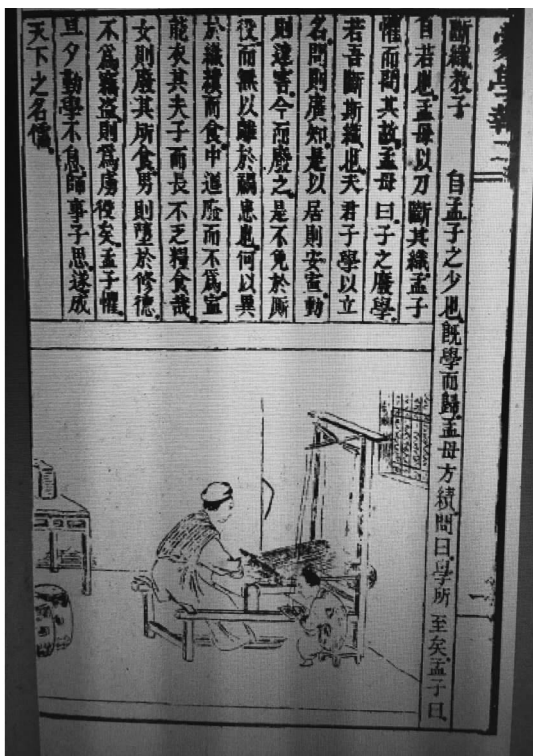 蒙學報二
斷織教子　自孟子之少也。既學而歸。孟母方績。問曰。學所至矣。孟子曰。
自若也。孟母以刀斷其織。孟子
懼而問其故。孟母曰。子之廢學。
若吾斷斯織也。夫君子學以立
名。問則廣知。是以居則安寧。動
則遠害。今而廢之。是不免於厮
役。而無以離於禍患也。何以異
於織績而食。中道廢而不爲。寧
能衣其夫子而長不乏糧食哉。
女則廢其所食。男則墮於修德。
不爲竊盜。則爲虜役矣。孟子懼。
旦夕勤學不息。師事子思。遂成
天下之名儒。